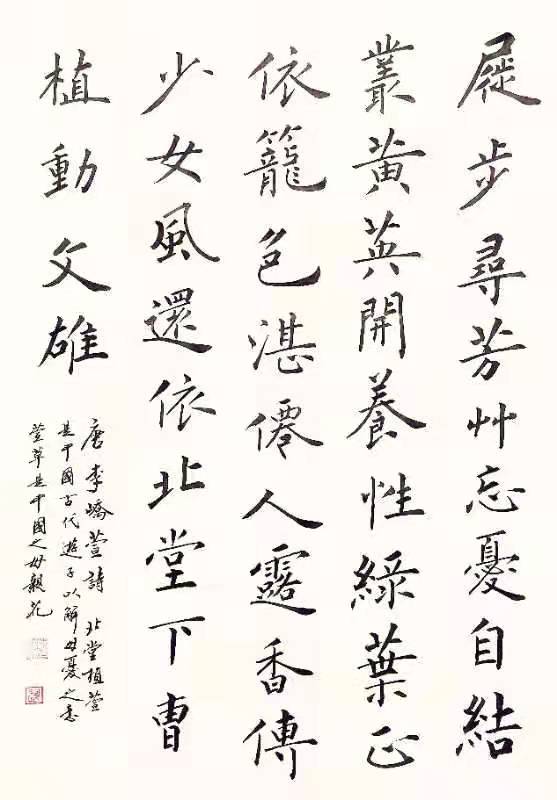 屣步尋芳艸忘憂自結
叢黃英開養性綠葉正
依籠色湛僊人露香傳
少女風還依北堂下曹
植動文雄
唐李嶠萱詩 北堂植萱
是中國古代遊子以解母憂之意
萱草是中國之母親花